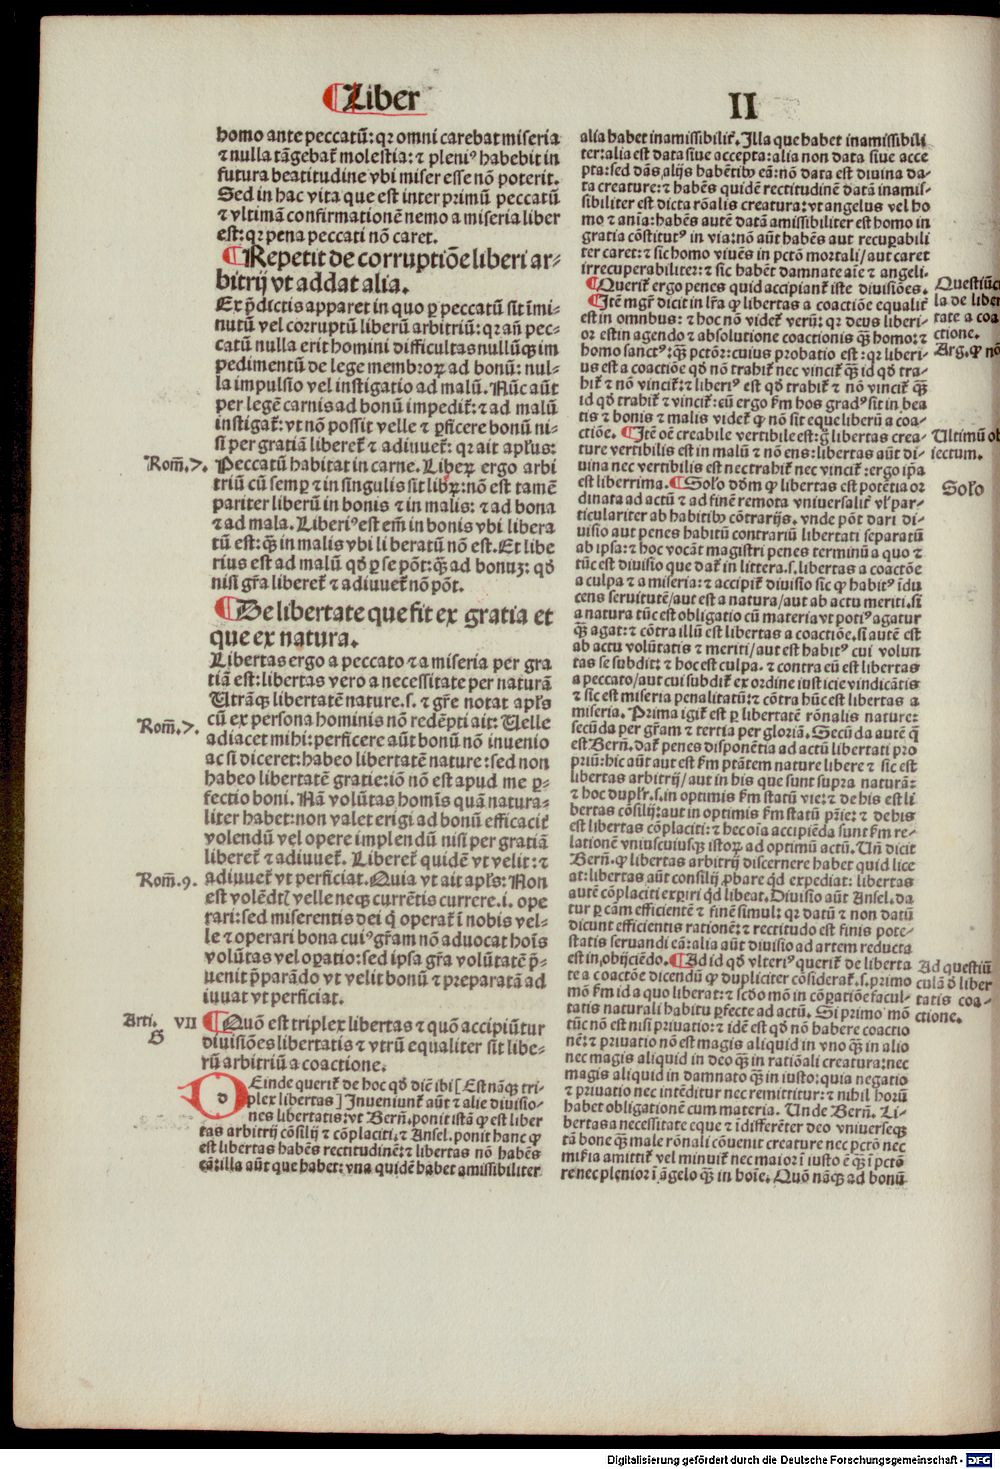 ¶Liber
II
homo ante peccatū: qꝛ omni carebat miseria
⁊ nulla tāgebať molestia: ⁊ pleniꝰ habebit in
futura beatitudine vbi miser esse nō poterit.
Sed in hac vita que est inter primū peccatū
⁊ vltimā confirmationē nemo a miseria liber
est: qꝛ pena peccati nō caret.
¶Repetit de corruptiōe liberi ar⸗
bitrij vt addat alia.
Ex p̄dictis apparet in quo ꝑ peccatū sit īmi⸗
nutū vel corruptū liberū arbitriū: qꝛ añ pec⸗
catū nulla erit homini difficultas nullūqꝫ im
pedimentū de lege membroꝝ ad bonū: nul⸗
la impulsio vel instigatio ad malū. Nūc aūt
per legē carnis ad bonū impediť: ⁊ ad malū
instigať: vt nō possit velle ⁊ ꝑficere bonū ni⸗
si per gratiā libereť ⁊ adiuueť: qꝛ ait apl̄us:
Rom̄.7.
Peccatū habitat in carne. Libeꝝ ergo arbi
triū cū semꝑ ⁊ in singulis sit libꝝ: nō est tamē
pariter liberū in bonis ⁊ in malis: ⁊ ad bona
⁊ ad mala. Liberiꝰ est em̄ in bonis vbi libera
tū est: qꝫ in malis vbi liberatū nō est. Et libe
rius est ad malū qd̄ ꝑ se pōt: qꝫ ad bonuꝫ: qd̄
nisi gr̄a libereť ⁊ adiuueť nō pōt.
¶De libertate que fit ex gratia et
que ex natura.
Libertas ergo a peccato ⁊ a miseria per gra
tiā est: libertas vero a necessitate per naturā
Utrāqꝫ libertatē nature .s. ⁊ gr̄e notat apl̄s
Rom̄.7.
cū ex persona hominis nō redēpti ait: Velle
adiacet mihi: perficere aūt bonū nō inuenio
ac si diceret: habeo libertatē nature: sed non
habeo libertatē gratie: iō nō est apud me ꝑ⸗
fectio boni. Nā volūtas homīs quā natura⸗
liter habet: non valet erigi ad bonū efficaciť
volendū vel opere implendū nisi per gratiā
libereť ⁊ adiuueť. Libereť quidē vt velit: ⁊
Rom̄.9.
adiuueť vt perficiat. Quia vt ait apl̄s: Non
est volēdtꝭ velle neqꝫ currētis currere .i. ope
rari: sed miserentis dei q̄ operať ī nobis vel⸗
le ⁊ operari bona cuiꝰ gr̄am nō aduocat hoīs
volūtas vel oꝑatio: sed ipsa gr̄a volūtatē p̄⸗
uenit p̄parādo vt velit bonū ⁊ preparatā ad
iuuat vt perficiat.
Arti. VII
B
¶Quō est triplex libertas ⁊ quō accipiūtur
diuisiōes libertatis ⁊ vtrū equaliter sit libe⸗
rū arbitriū a coactione.
Deinde queriť de hoc qd̄ diē ibi [Est nāqꝫ tri⸗
plex libertas] Inueniunť aūt ⁊ alie diuisio⸗
nes libertatis: vt Berñ. ponit istā ꝙ est liber
tas arbitrij cōsilij ⁊ cōplaciti, ⁊ Ansel. ponit hanc ꝙ
est libertas habēs rectitudinē: ⁊ libertas nō habēs
eā: illa aūt que habet: vna quidē habet amissibiliter
alia habet inamissibiliť. Illa que habet inamissibili
ter: alia est data siue accepta: alia non data siue acce
pta: sed dās alijs habētibꝰ eā: nō data est diuina da⸗
ta creature: ⁊ habēs quidē rectitudinē datā inamis⸗
sibiliter est dicta rōalis creatura: vt angelus vel ho
mo ⁊ anīa: habēs autē datā amissibiliter est homo in
gratia cōstitutꝰ in via: nō aūt habēs aut recuꝑabili
ter caret: ⁊ sic homo viuēs in pctō mortali/ aut caret
irrecuperabiliter: ⁊ sic habēt damnate aīe ⁊ angeli.
¶Queriť ergo penes quid accipianť iste diuisiōes.
¶Itē mgr̄ dicit in lr̄a ꝙ libertas a coactiōe equaliť
est in omnibus: ⁊ hoc nō videť verū: qꝛ deus liberi⸗
or est in agendo ⁊ absolutione coactionis qꝫ homo: ⁊
homo sanctꝰ: qꝫ pctōr: cuius probatio est: qꝛ liberi⸗
us est a coactiōe qd̄ nō trahiť nec vinciť qꝫ id qd̄ tra⸗
hiť ⁊ nō vinciť: ⁊ liberiꝰ est qd̄ trahiť ⁊ nō vinciť qꝫ
id qd̄ trahiť ⁊ vinciť: cū ergo ẜm hos gradꝰ sit in bea
tis ⁊ bonis ⁊ malis videť ꝙ nō sit eque liberū a coa⸗
ctiōe. ¶Itē oē creabile vertibile est: g̊ libertas crea⸗
ture vertibilis est in malū ⁊ nō ens: libertas aūt di⸗
uina nec vertibilis est nec trahiť nec vinciť: ergo ip̄a
est liberrima. ¶Solo dōm ꝙ libertas est potētia or
dinata ad actū ⁊ ad finē remota vniuersaliť vl̓ par⸗
ticulariter ab habitibꝰ cōtrarijs. vnde pōt dari di⸗
uisio aut penes habitū contrariū libertati separatū
ab ipsa: ⁊ hoc vocāt magistri penes terminū a quo ⁊
tūc est diuisio que dať in littera .s. libertas a coactōe
a culpa ⁊ a miseria: ⁊ accipiť diuisio sic ꝙ habitꝰ īdu
cens seruitutē/ aut est a natura/ aut ab actu meriti. si
a natura tūc est obligatio cū materia vt potiꝰ agatur
qꝫ agat: ⁊ cōtra illū est libertas a coactiōe. si autē est
ab actu volūtatis ⁊ meriti/ aut est habitꝰ cui volun
tas se subdit: ⁊ hoc est culpa. ⁊ contra eū est libertas
a peccato/ aut cui subdiť ex ordine iusticie vindicātis
⁊ sic est miseria penalitatū: ⁊ cōtra hūc est libertas a
miseria. Prima igiť est ꝑ libertatē rōnalis nature:
secūda per gr̄am ⁊ tertia per gloriā. Secūda autē q̄
est Berñ. dať penes disponētia ad actū libertati pro
priū: hic aūt aut est ẜm ptātem nature libere ⁊ sic est
libertas arbitrij/ aut in his que sunt supra naturā:
⁊ hoc duplr̄ .s. in optimis ẜm statū vie: ⁊ de his est li
bertas cōsilij: aut in optimis ẜm statū pr̄ie: ⁊ de his
est libertas cōplaciti: ⁊ hec oīa accipiēda sunt ẜm re⸗
lationē vniuscuiusqꝫ istoꝝ ad optimū actū. Uñ dicit
Berñ. ꝙ libertas arbitrij discernere habet quid lice
at: libertas aūt consilij ꝓbare qd̄ expediat: libertas
autē cōplaciti exꝑiri qd̄ libeat. Diuisio aūt Ansel. da
tur ꝑ cām efficientē ⁊ finē simul: qꝛ datū ⁊ non datū
dicunt efficientis rationē: ⁊ rectitudo est finis pote⸗
statis seruandi eā: alia aūt diuisio ad artem reducta
est in, obijciēdo. ¶Ad id qd̄ vlteriꝰ queriť de liberta
te a coactōe dicendū ꝙ dupliciter cōsiderať .s. primo
mō ẜm id a quo liberat: ⁊ scdo mō in cōꝑatiōe facul⸗
tatis naturali habitu ꝑfecte ad actū. Si primo mō
tūc nō est nisi priuatio: ⁊ idē est qd̄ nō habere coactio
nē: ⁊ priuatio nō est magis aliquid in vno qꝫ in alio
nec magis aliquid in deo qꝫ in ratiōali creatura: nec
magis aliquid in damnato qꝫ in iusto: quia negatio
⁊ priuatio nec intēditur nec remittitur: ⁊ nihil horū
habet obligationē cum materia. Unde Berñ. Li⸗
bertas a necessitate eque ⁊ īdifferēter deo vniuerseqꝫ
tā bone qꝫ male rōnali cōuenit creature nec pctō nec
miẜia amittiť vel minuiť nec maior ī iusto ē qꝫ ī pctō
re nec plenior ī āgelo qꝫ in hoīe. Quō nāqꝫ ad bonū
Questiūc
la de liber
tate a coa
ctione.
Arg. ꝙ nō
Ultimū ob
iectum.
Solo
Ad questiū
culā d̄ liber
tatis coa⸗
ctione.
Digitalisierung gefördert durch die Deutsche Forschungsgemeinschaft - DFG